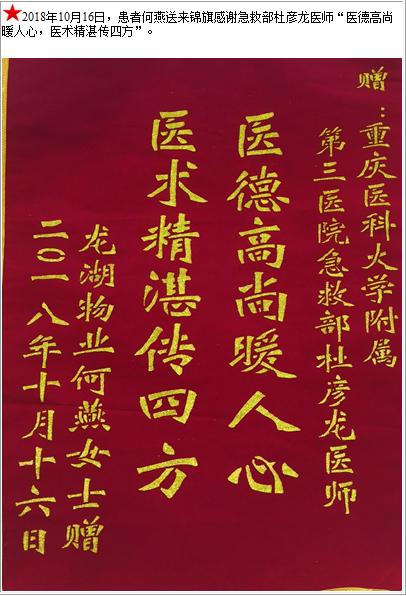 ★2018年10月16日，患者何燕送来锦旗感谢急救部杜彦龙医师“医德高尚
暖人心，医术精湛传四方”。
赠：重庆医科大学附属
第三医院急救部杜彦龙医师
医德高尚暖人心
医术精湛传四方
龙湖物业何燕女士赠
二〇一八年十月十六日